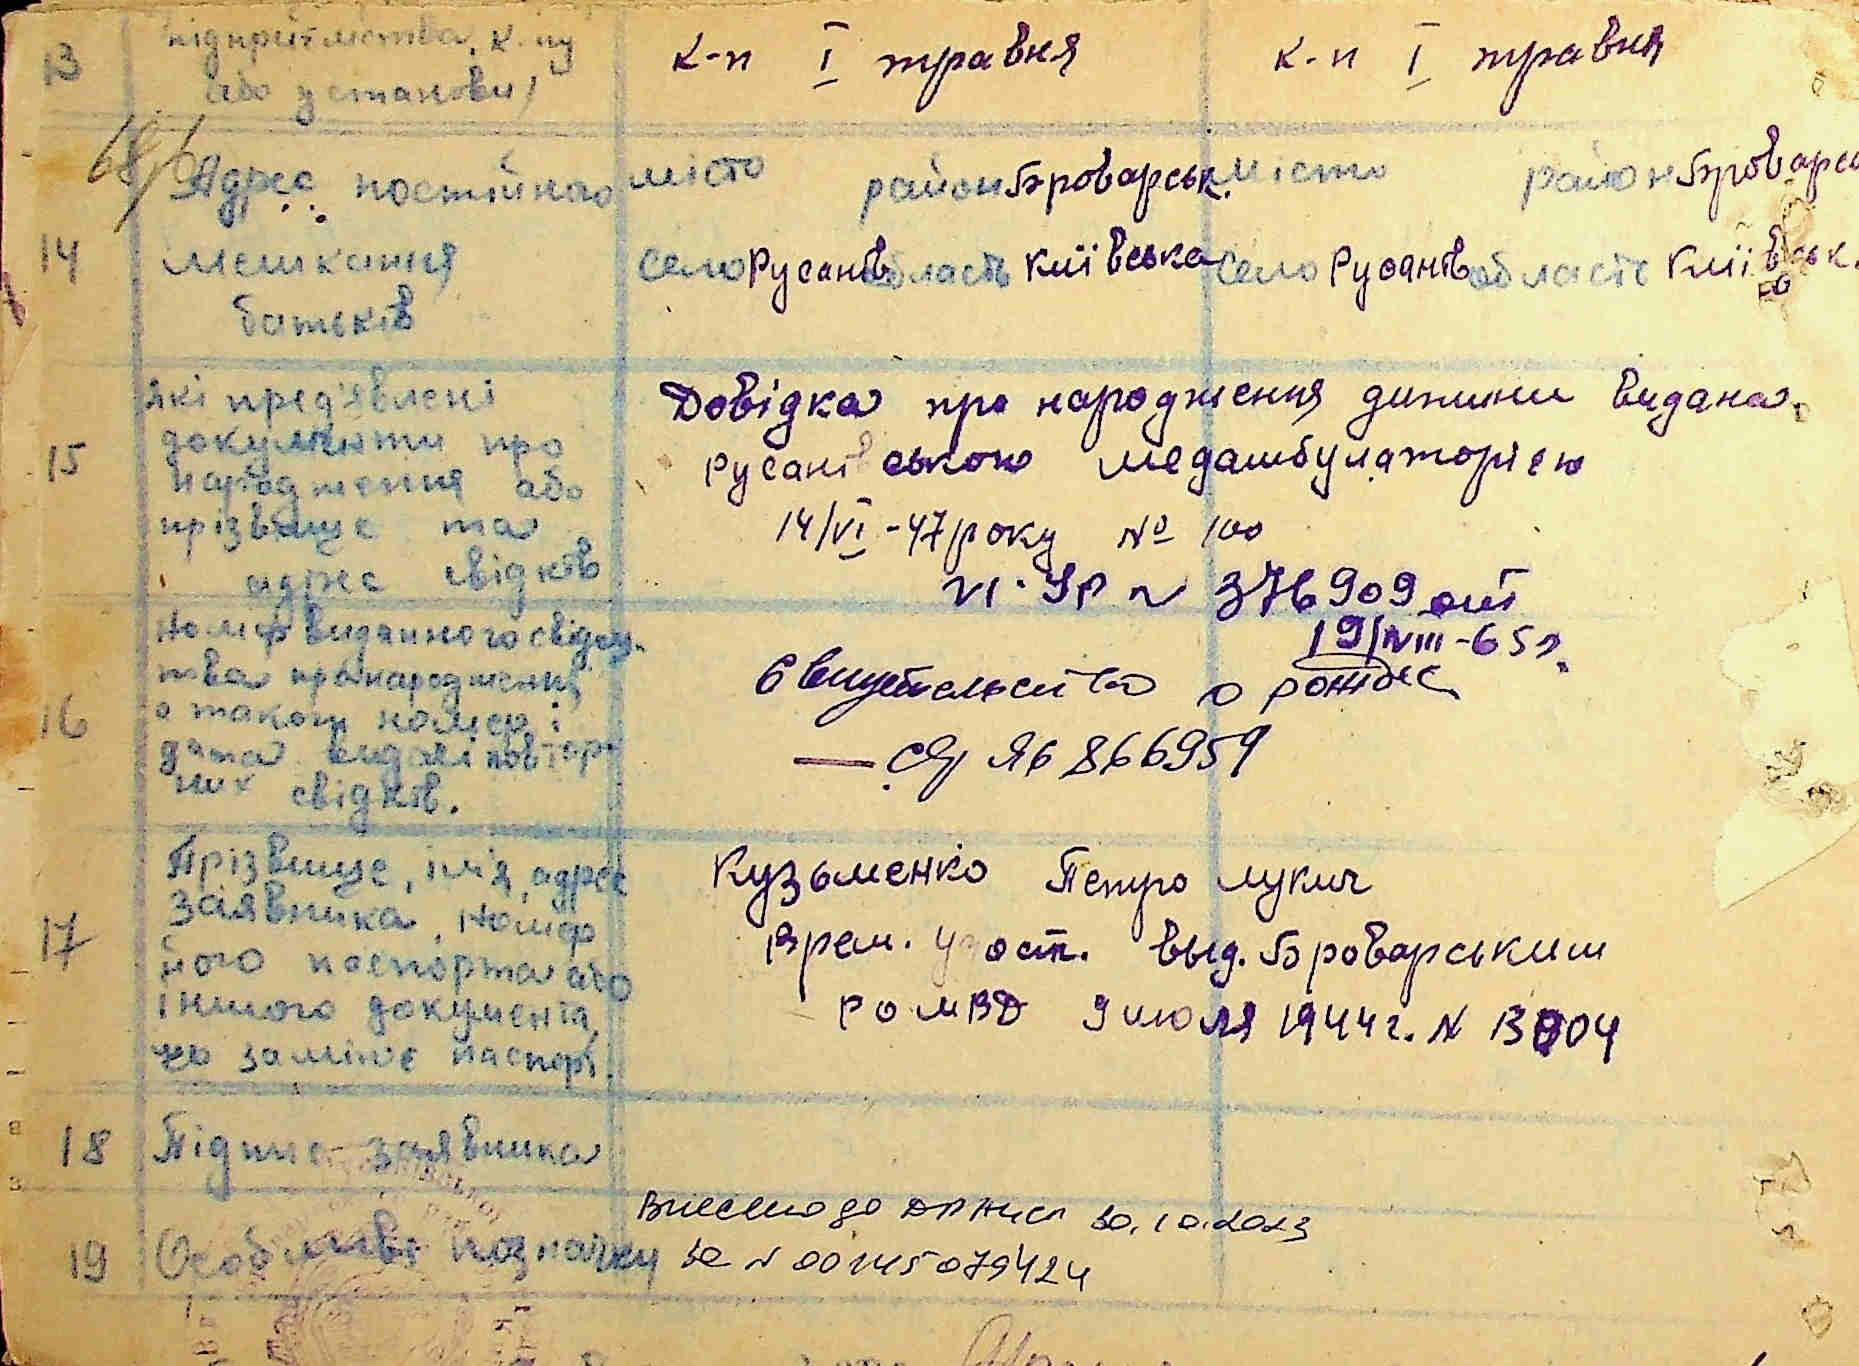 13 підприємства, к-пу к-п І травня к-п І травня
або установи)
Адрес постійного місто район Броварськ. місто район Броварс
14 мешкання село Русанів область Київська село Русанів область Київськ.
батьків
які пред'явлені Довідка про народження дитини видана
докумінти про Русанівською медамбулаторією
15 народження або 14/VI-47 року № 100
прізвище та VI-УР № 376909 от
адрес свідків 19/VIII-65 г.
Номер виданного свідоц- Свидетельство о рожде
тва про народження,
16 о таком номер і — 866959
дата видачі повтор-
них свідків.
Прізвище, ім'я, адрес Кузьменко Петро Лукич
заявника, номер Врем. удост. выд. Броварським
17 його паспорта або РО МВД 9 июля 1944 г. N
іншого документа,
що заміняє паспорт.
18 Підпис заявника
Внесено до ДРАЦС 30.10.2023
19 Особливі позначки за N 00145079424